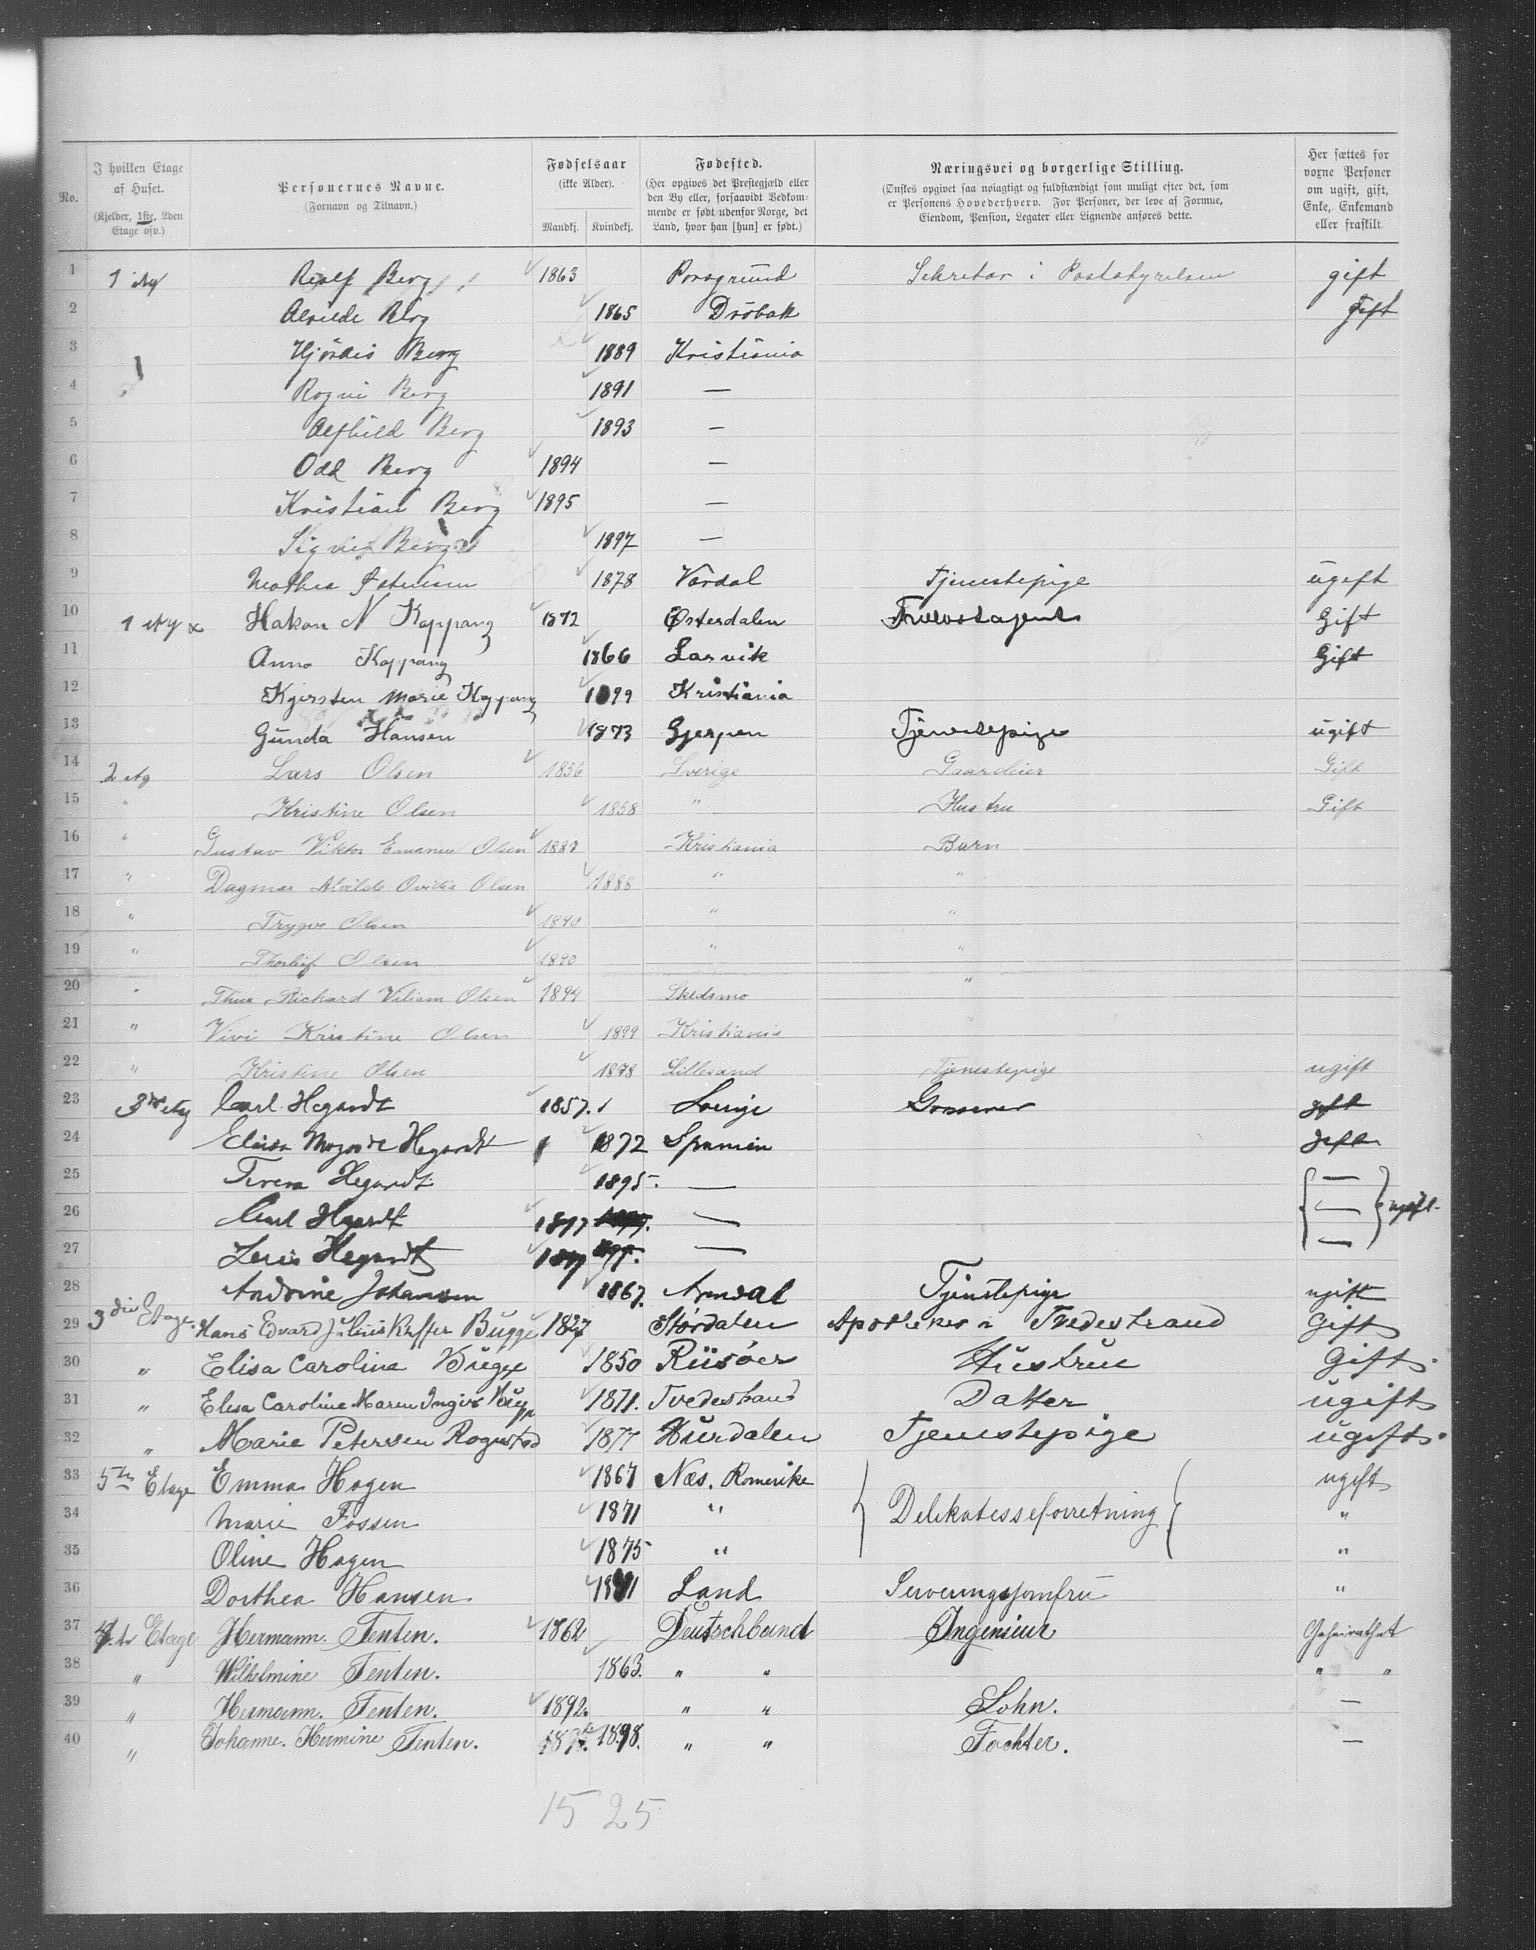 No.
I hvilken Etage af Huset. (Kjelder, 1ste, 2den Etage osv.)
Personernes Navne. (Fornavn og Tilnavn.)
Fødselsaar (ikke Alder). Mandkj. Kvindekj.
Fødested. (Her opgives det Prestegjæld eller den By eller, forsaavidt Vedkommende er født udenfor Norge, det Land, hvor han [hun] er født.)
Næringsvei og borgerlige Stilling. (Ønskes opgivet saa nøiagtigt og fuldstændigt som muligt efter det, som er Personens Hovederhverv. For Personer, der leve af Formue, Eiendom, Pension, Legater eller Lignende anføres dette.
Her sættes for voxne Personer om ugift, gift, Enke, Enkemand eller fraskilt
1 1 etg Rolf Berg 1863 Porsgrund Sekretær i Poststyrelsen gift
2 Alvilde Berg 1865 Drøbak gift
3 Hjördis Berg 1889 Kristiania
4 Berg 1891 —
5 Alfhild Berg 1893 —
6 Odd Berg 1894 —
7 Kristian Berg 1895 —
8 Berg 1897 —
9 Mathea 1878 Vardal Tjenestepige ugift
10 1 etg x Hakon N Koppang 1872 Østerdalen Gift
11 Anna Koppang 1866 Larvik Gift
12 Kjersten Marie Koppang 1899 Kristiania
13 Gunda Hansen 1873 Gjerpen Tjenestepige ugift
14 2 etg Lars Olsen 1856 Sverige Gaardeier Gift
15 " Kristine Olsen 1858 " Hustru Gift
16 " Gustav Viktor Emanuel Olsen 1887 Kristiania Barn
17 " Dagmar Alvilde Olsen 1888 " "
18 " Trygve Olsen 1890 " "
19 " Thorleif Olsen 1890 " "
20 " Richard Viliam Olsen 1894 Skedsmo "
21 " Vivi Kristine Olsen 1899 Kristiania "
22 " Kristine Olsen 1878 Lillesand Tjenestepige ugift
23 3die etg Carl Hegardt 1857. Sverige Grosserer gift
24 Hegardt 1872 Spanien gift
25 Hegardt 1895. — —
26 Carl Hegardt 1897 — — } ugift.
27 Hegardt — —
28 Andrine Johansen 1867. Arendal Tjenstepige ugift
29 3die Etage. Hans Edvard Julius Bugge 1827 Størdalen Apotheker i Tvedestrand Gift
30 " Elisa Carolina Bugge 1850 Riisöer Hustrue Gift.
31 " Elisa Caroline Maren Bugge 1871. Tvedestrand Datter ugift
32 " Marie Petersen Rognstad 1877 Hurdalen Tjenestepige ugift.
33 5te Etage Emma Hagen 1867 Næs. Romerike ugift
34 Marie Fossen 1871 " { Delikatesseforretning } "
35 Oline Hagen 1875 " "
36 Dorthea Hansen 1871 Land Serveringsjomfru "
37 4.te Etage Hermann Tenten. 1862 Deutschland Ingenieur Geheirathet
38 " Wilhelmine Tenten. 1863. " " " "
39 " Hermann. Tenten. 1892. " " Sohn. —
40 " Johanne. Hermine Tenten. 1898. " " Tochter. —
15 25